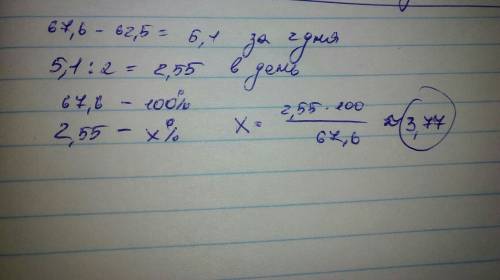 67,6 - 62,5 = 5,1 за 2 дня
5,1 : 2 = 2,55 в день
67,6 - 100%
2,55 - x% X = 2,55 · 100 / 67,6 ≈ 3,77